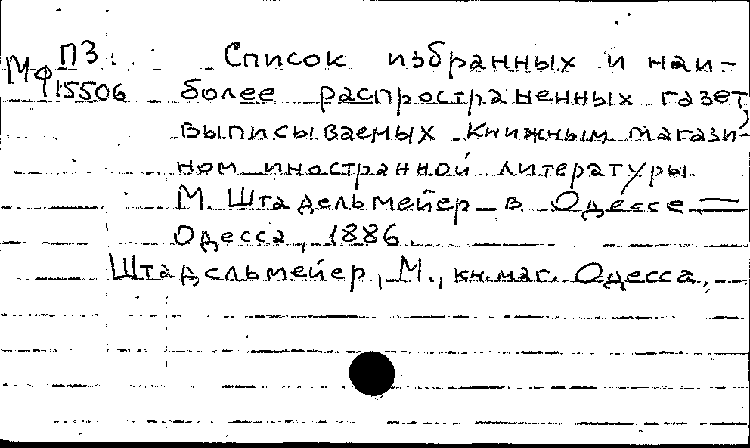 МФ П3
15506
Список избранных и наи-
более распространенных газет,
выписываемых книжным магази-
ном иностранной литературы
М. Штадельмейер в Одессе —
Одесса, 1886.
Штадельмейер, М., кн. маг. Одесса,